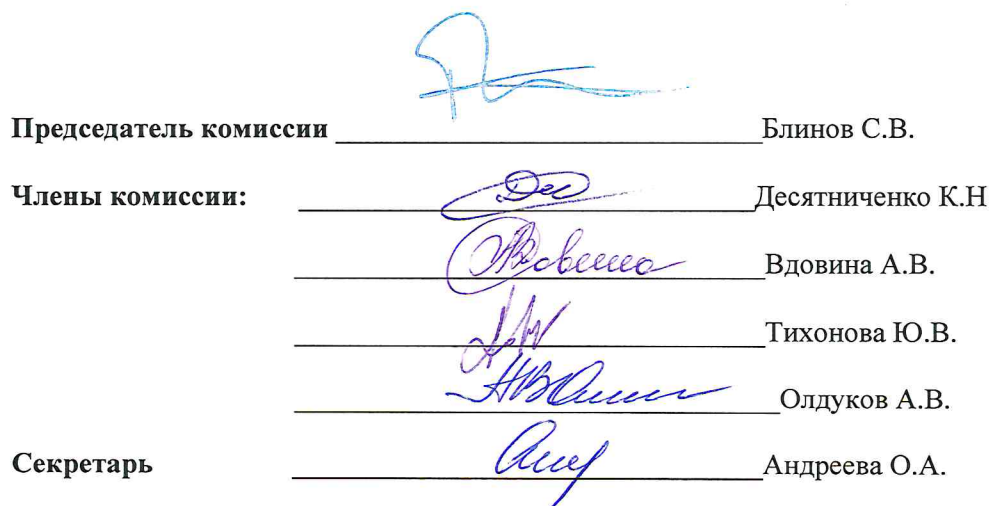 Председатель комиссии Блинов С.В.
Члены комиссии: Десятниченко К.Н
Вдовина А.В.
Тихонова Ю.В.
Олдуков А.В.
Секретарь Андреева О.А.